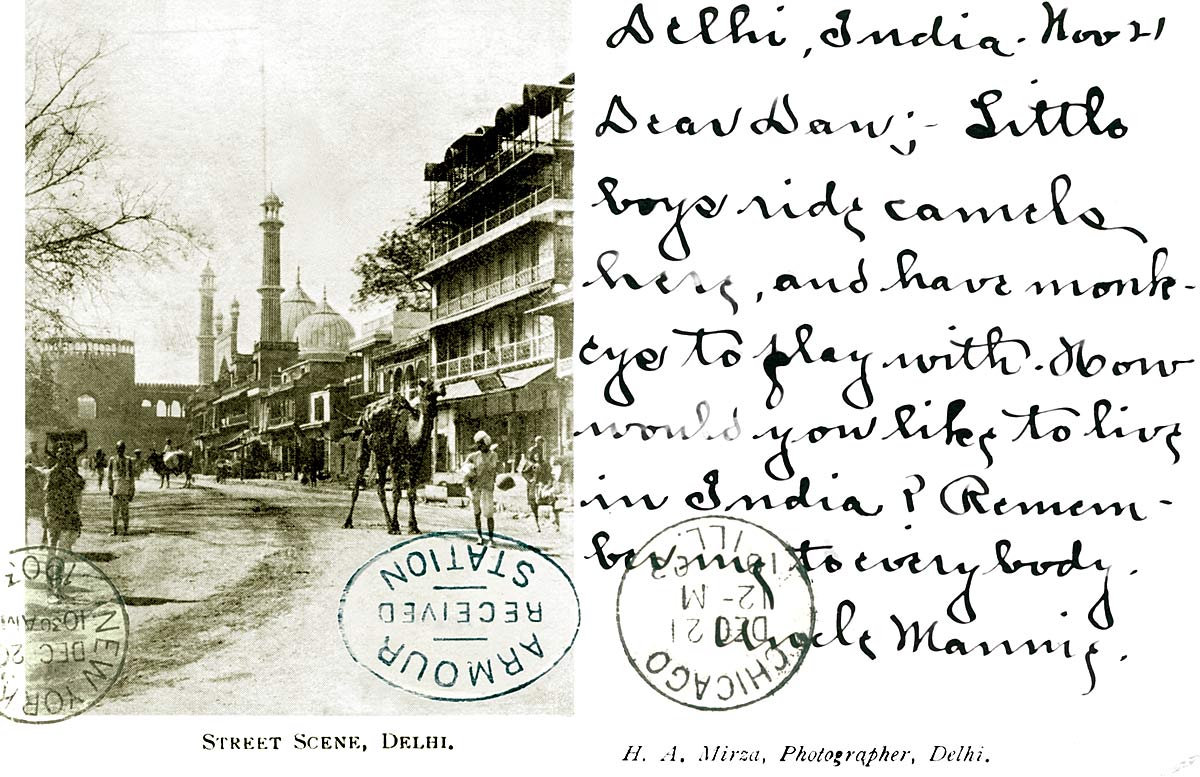 Delhi, India. Nov 21
Dear Dan;- Little
boys ride camels
here, and have monk-
eys to play with. How
would you like to live
in India? Remem-
bering to every body.
Uncle Mannie.
ARMOUR
RECEIVED
STATION
CHICAGO
DEC 21
12-M
ILL.
NEW YORK
DEC
10 30 AM
STREET SCENE, DELHI.
H. A. Mirza, Photographer, Delhi.